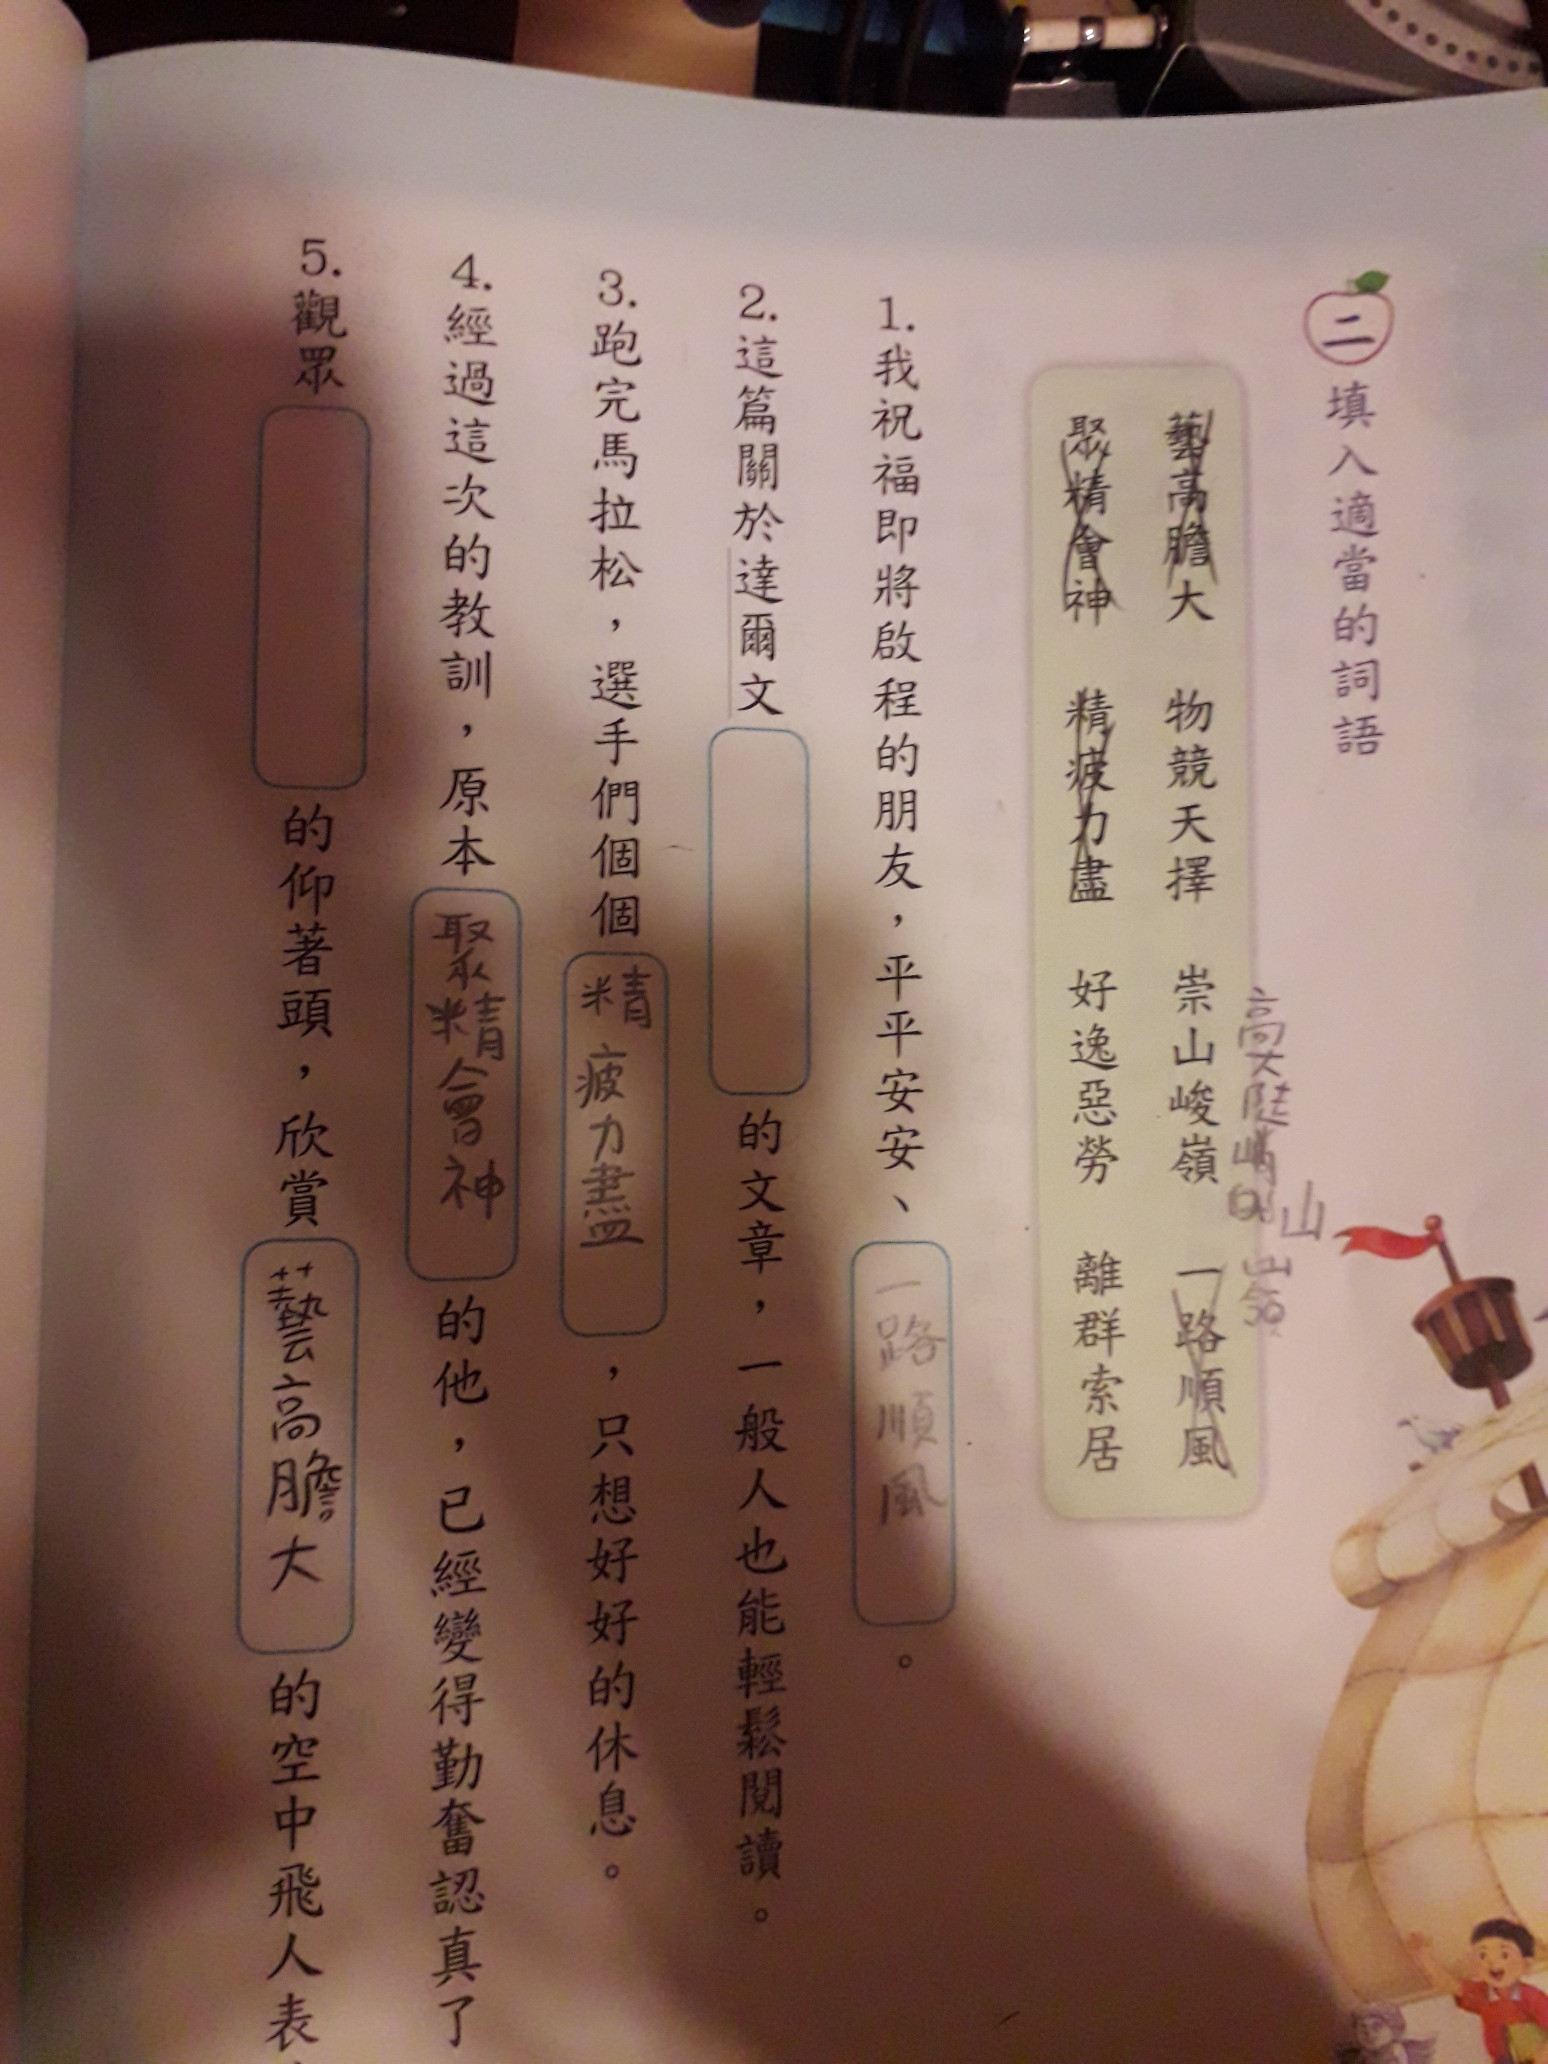 二 填入適當的詞語
藝高膽大 物競天擇 崇山峻嶺 一路順風
高大陡峭的山
山嶺
聚精會神 精疲力盡 好逸惡勞 離群索居
1.我祝福即將啟程的朋友，平平安安、一路順風。
2.這篇關於達爾文 的文章，一般人也能輕鬆閱讀。
3.跑完馬拉松，選手們個個精疲力盡，只想好好的休息。
4.經過這次的教訓，原本聚精會神的他，已經變得勤奮認真了
5.觀眾 的仰著頭，欣賞藝高膽大的空中飛人表